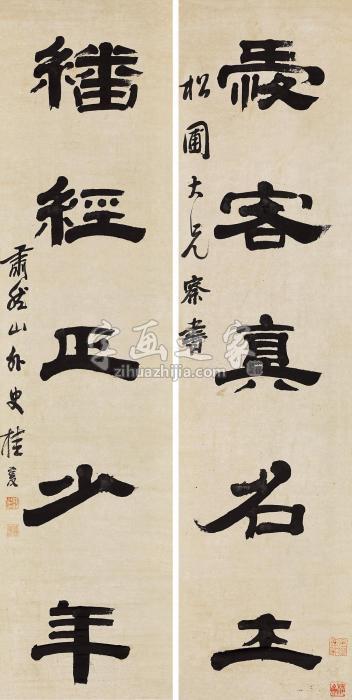 愛客真名王
松圃大兄察書
繙經正少年
肅然山外史桂馥
字画业家
zihuazhijia.com